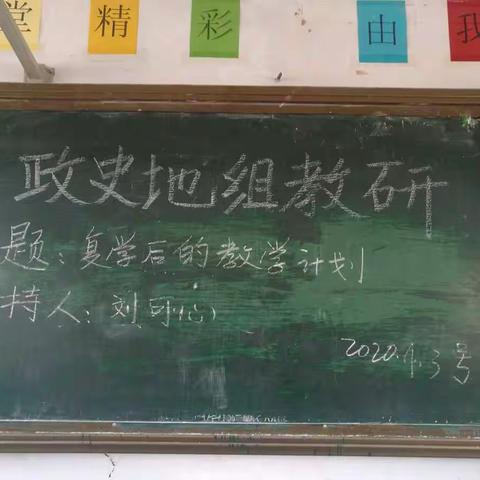 堂 精 彩 由 我
政史地组教研
题：复学后的教学计划
持人：刘可心
2020.4.3号